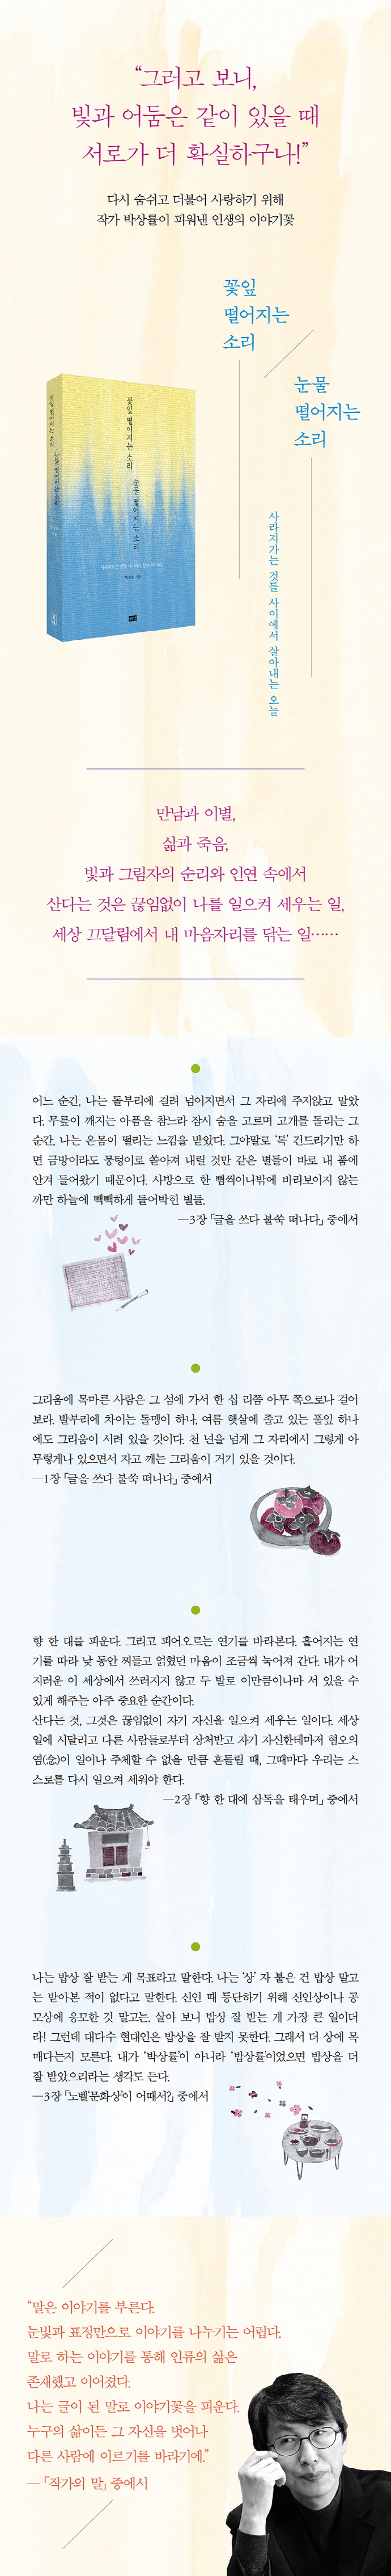 “그러고 보니,
빛과 어둠은 같이 있을 때
서로가 더 확실하구나!”
다시 숨쉬고 더불어 사랑하기 위해
작가 박상률이 피워낸 인생의 이야기꽃
꽃잎
떨어지는
소리
눈물
떨어지는
소리
사라져가는 것들 사이에서 살아내는 오늘
꽃잎 떨어지는 소리
눈물 떨어지는 소리
꽃잎 떨어지는 소리 눈물 떨어지는 소리
만남과 이별,
삶과 죽음,
빛과 그림자의 순리와 인연 속에서
산다는 것은 끊임없이 나를 일으켜 세우는 일,
세상 끄달림에서 내 마음자리를 닦는 일……
어느 순간, 나는 돌부리에 걸려 넘어지면서 그 자리에 주저앉고 말았
다. 무릎이 깨지는 아픔을 참느라 잠시 숨을 고르며 고개를 돌리는 그
순간, 나는 온몸이 떨리는 느낌을 받았다. 그야말로 ‘톡’ 건드리기만 하
면 금방이라도 뭉텅이로 쏟아져 내릴 것만 같은 별들이 바로 내 품에
안겨 들어왔기 때문이다. 사방으로 한 뼘씩이나밖에 바라보이지 않는
까만 하늘에 빽빽하게 들어박힌 별들.
―3장 「글을 쓰다 불쑥 떠나다」 중에서
그리움에 목마른 사람은 그 섬에 가서 한 십 리쯤 아무 쪽으로나 걸어
보라. 발부리에 차이는 돌멩이 하나, 여름 햇살에 졸고 있는 풀잎 하나
에도 그리움이 서려 있을 것이다. 천 년을 넘게 그 자리에서 그렇게 아
무렇게나 있으면서 자고 깨는 그리움이 거기 있을 것이다.
―1장 「글을 쓰다 불쑥 떠나다」 중에서
향 한 대를 피운다. 그리고 피어오르는 연기를 바라본다. 흩어지는 연
기를 따라 낮 동안 찌들고 얽혔던 마음이 조금씩 눅어져 간다. 내가 어
지러운 이 세상에서 쓰러지지 않고 두 발로 이만큼이나마 서 있을 수
있게 해주는 아주 중요한 순간이다.
산다는 것, 그것은 끊임없이 자기 자신을 일으켜 세우는 일이다. 세상
일에 시달리고 다른 사람들로부터 상처받고 자기 자신한테마저 혐오의
염(念)이 일어나 주체할 수 없을 만큼 흔들릴 때, 그때마다 우리는 스
스로를 다시 일으켜 세워야 한다.
―2장 「향 한 대에 삼독을 태우며」 중에서
나는 밥상 잘 받는 게 목표라고 말한다. 나는 ‘상’ 자 붙은 건 밥상 말고
는 받아본 적이 없다고 말한다. 신인 때 등단하기 위해 신인상이나 공
모상에 응모한 것 말고는. 살아 보니 밥상 잘 받는 게 가장 큰 일이더
라! 그런데 대다수 현대인은 밥상을 잘 받지 못한다. 그래서 더 상에 목
매다는지 모른다. 내가 ‘박상률’이 아니라 ‘밥상률’이었으면 밥상을 더
잘 받았으리라는 생각도 든다.
―3장 「‘노벨’문화상’이 어때서?」 중에서
“말은 이야기를 부른다.
눈빛과 표정만으로 이야기를 나누기는 어렵다.
말로 하는 이야기를 통해 인류의 삶은
존재했고 이어졌다.
나는 글이 된 말로 이야기꽃을 피운다.
누구의 삶이든 그 자신을 벗어나
다른 사람에 이르기를 바라기에.”
― 「작가의 말」 중에서